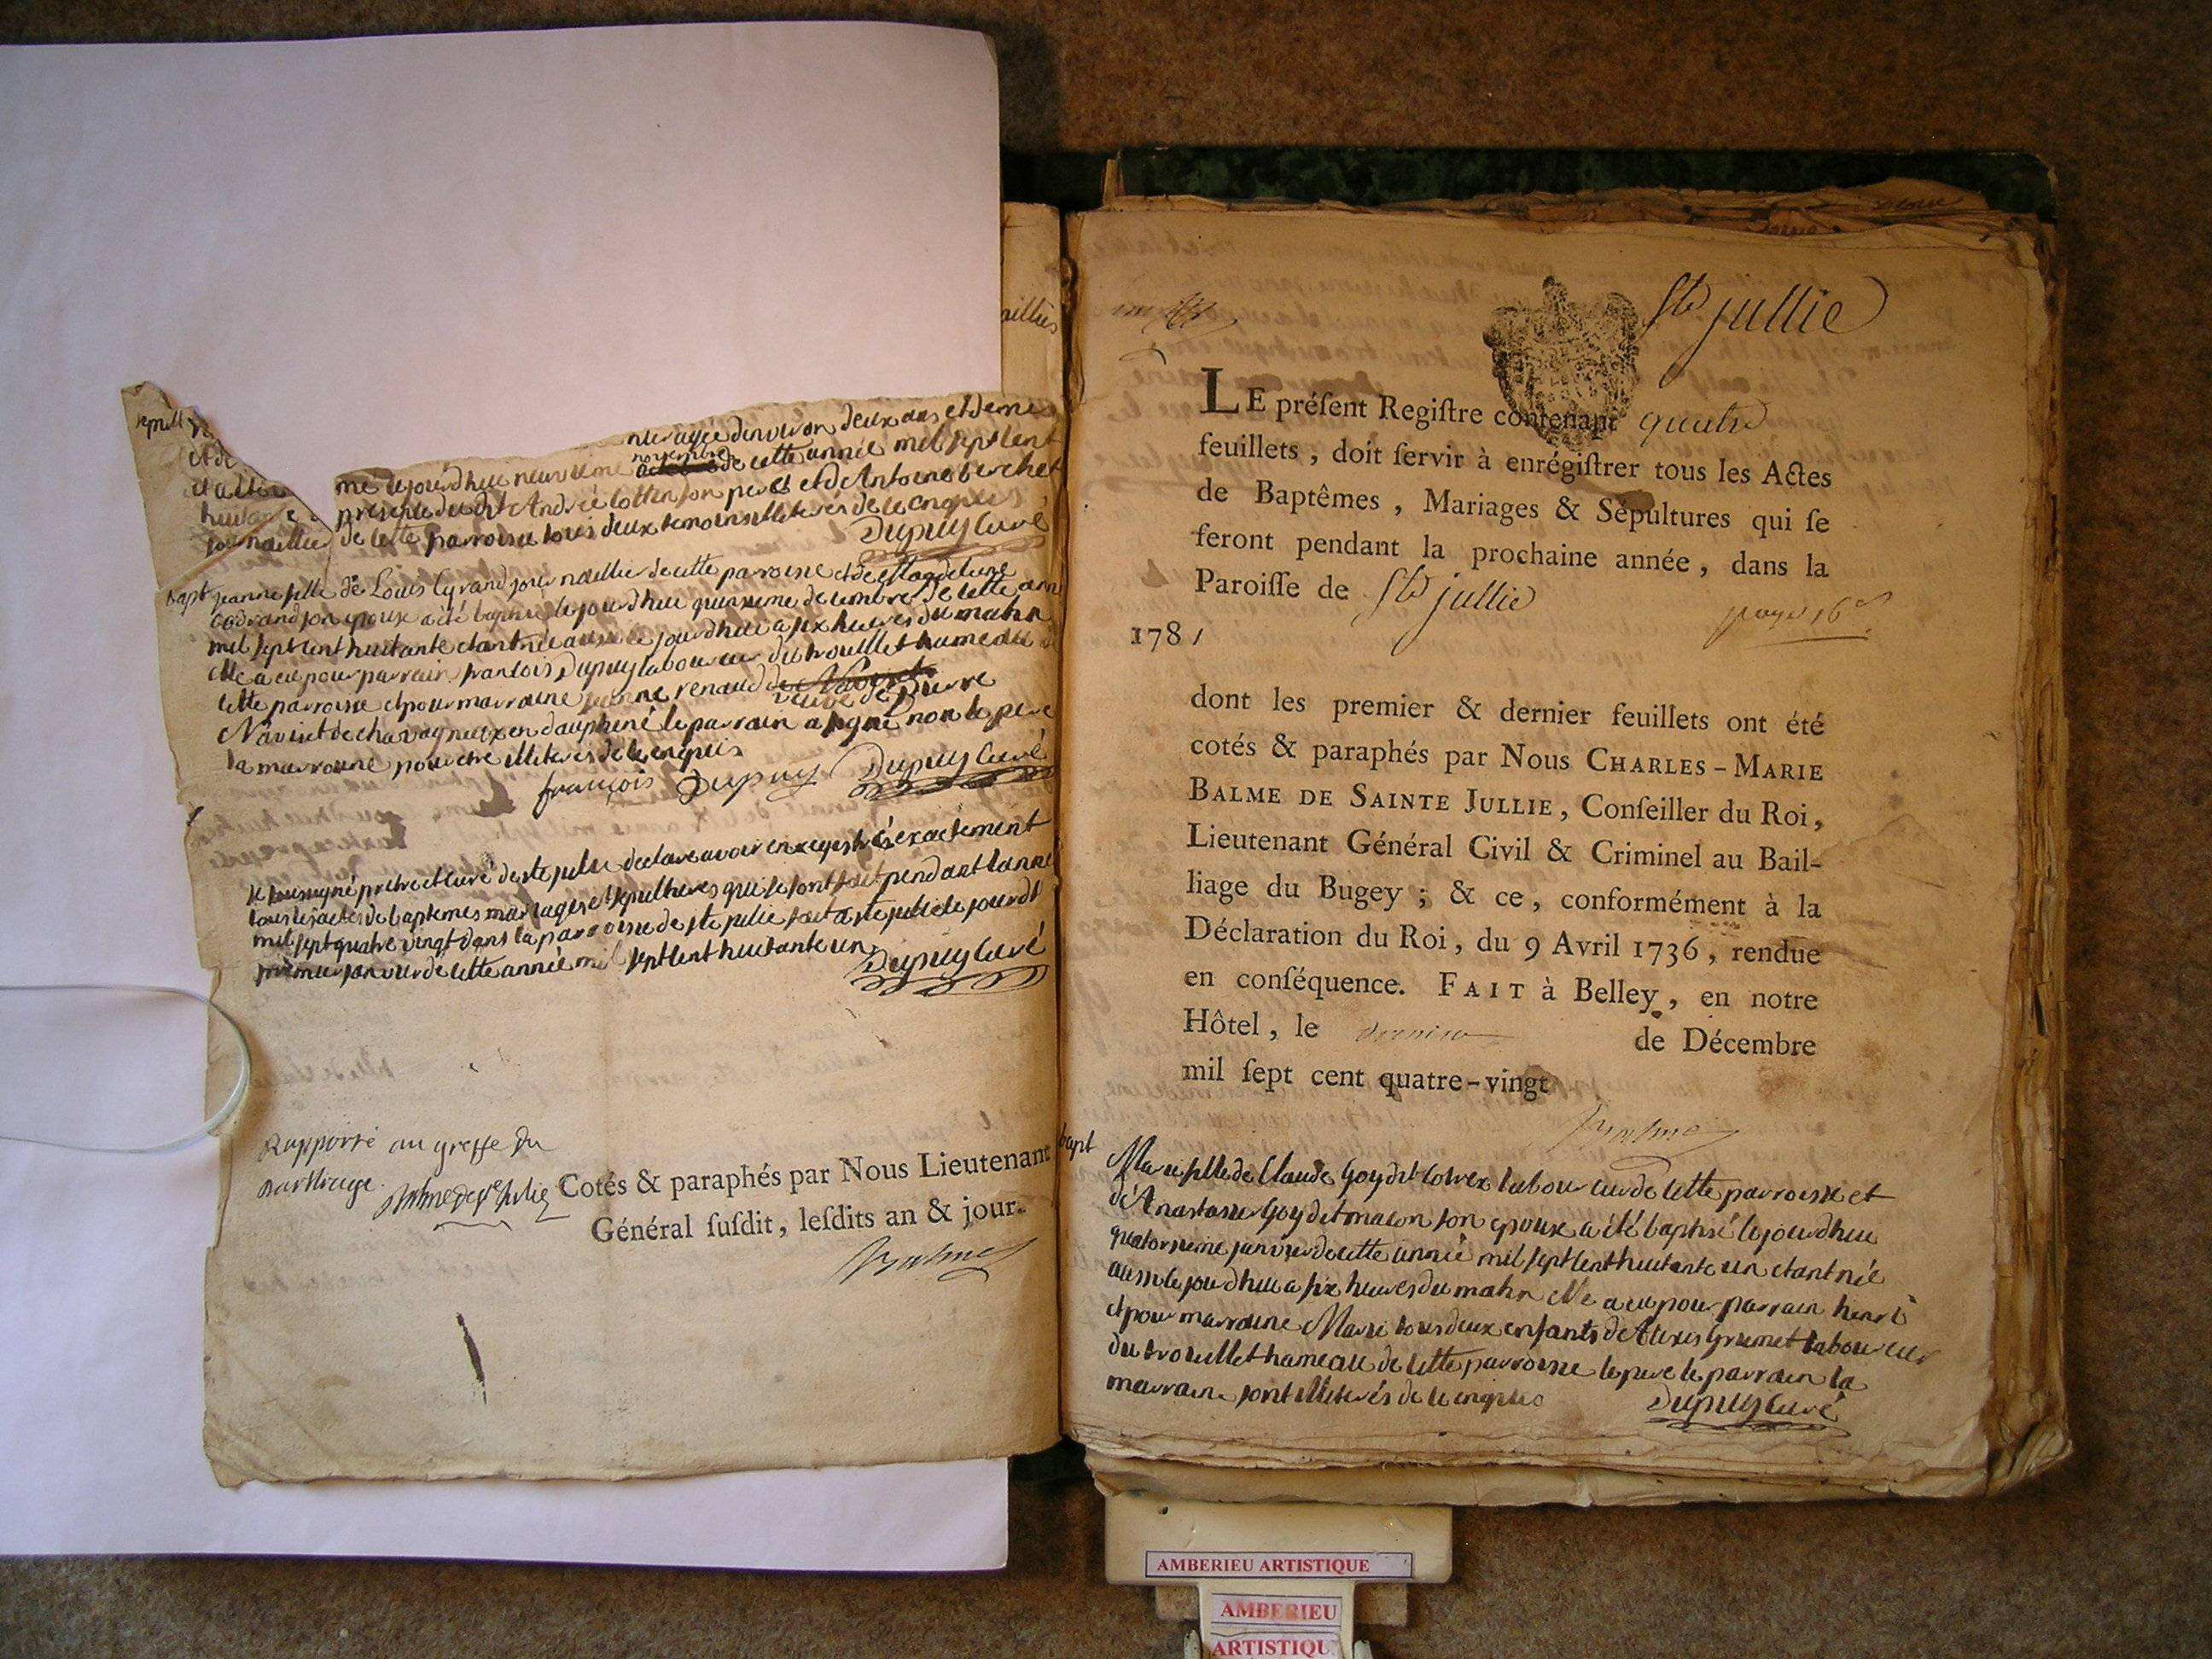 aillies
sepult
agée denviron deux ans et demi
et de
me lejourdhui neuvieme novembre de cette année mil sept cent
huitante presence dudit André Cottin son pere et de Antoine berchet
journaillier de cette parroisse tous deux temoins illiterés de ce enquis
Dupuy Curé
bapt jeanne fille de Louis Cyrand journaillier de cette parroisse et de Magdeleine
son epouse a été baptisée lejourdhui quinsieme decembre de cette anné
mil sept cent huitante etant née aussi lejourdhui a six heures du matin
elle a eu pour parrain francois Dupuy laboureur du trouillet hameau de
cette parroisse et pour marraine jeanne renaud veuve de Pierre
Navinet de chavagneux en dauphiné le parrain a signé non le pere
la marraine pour etre illiterés de ce enquis
françois Dupuy Dupuy Curé
Je soussigné pretre et curé de ste julie declare avoir enregistrés exactement
tous les actes de baptemes mariages et sepultures qui se sont fait pendant lanné
mil sept quatre vingt dans la parroisse de ste julie fait a ste julie le jourdh
premier janvier de cette année mil sept cent huitante un
Dupuy Curé
Rapporté au greffe du
Bailliage. Balme de Ste Julie
Cotés & paraphés par Nous Lieutenant
Général ſuſdit, leſdits an & jour.
Balme
Ste jullie
LE préſent Regiſtre contenant quatre
feuillets, doit ſervir à enrégiſtrer tous les Actes
de Baptêmes, Mariages & Sépultures qui ſe
feront pendant la prochaine année, dans la
Paroiſſe de Ste jullie
1781
dont les premier & dernier feuillets ont été
cotés & paraphés par Nous CHARLES-MARIE
BALME DE SAINTE JULLIE, Conſeiller du Roi,
Lieutenant Général Civil & Criminel au Bail-
liage du Bugey ; & ce, conformément à la
Déclaration du Roi, du 9 Avril 1736, rendue
en conſéquence. FAIT à Belley, en notre
Hôtel, le dernier de Décembre
mil ſept cent quatre-vingt
Balme
bapt
Marie fille de Claude Goy dit Convex laboureur de cette parroisse et
de Anastasie Goy dit macon son epouse a été baptisé lejourdhui
quatorsieme janvier de cette année mil sept cent huitante un etant née
aussi lejourdhui a six heures du matin elle a eu pour parrain henri
et pour marraine Marie tous deux enfants de Alexis Grumet laboureur
du trouillet hameau de cette parroisse le pere le parrain la
marraine sont illiterés de ce enquis
Dupuy Curé
AMBERIEU ARTISTIQUE
AMBERIEU
ARTISTIQU